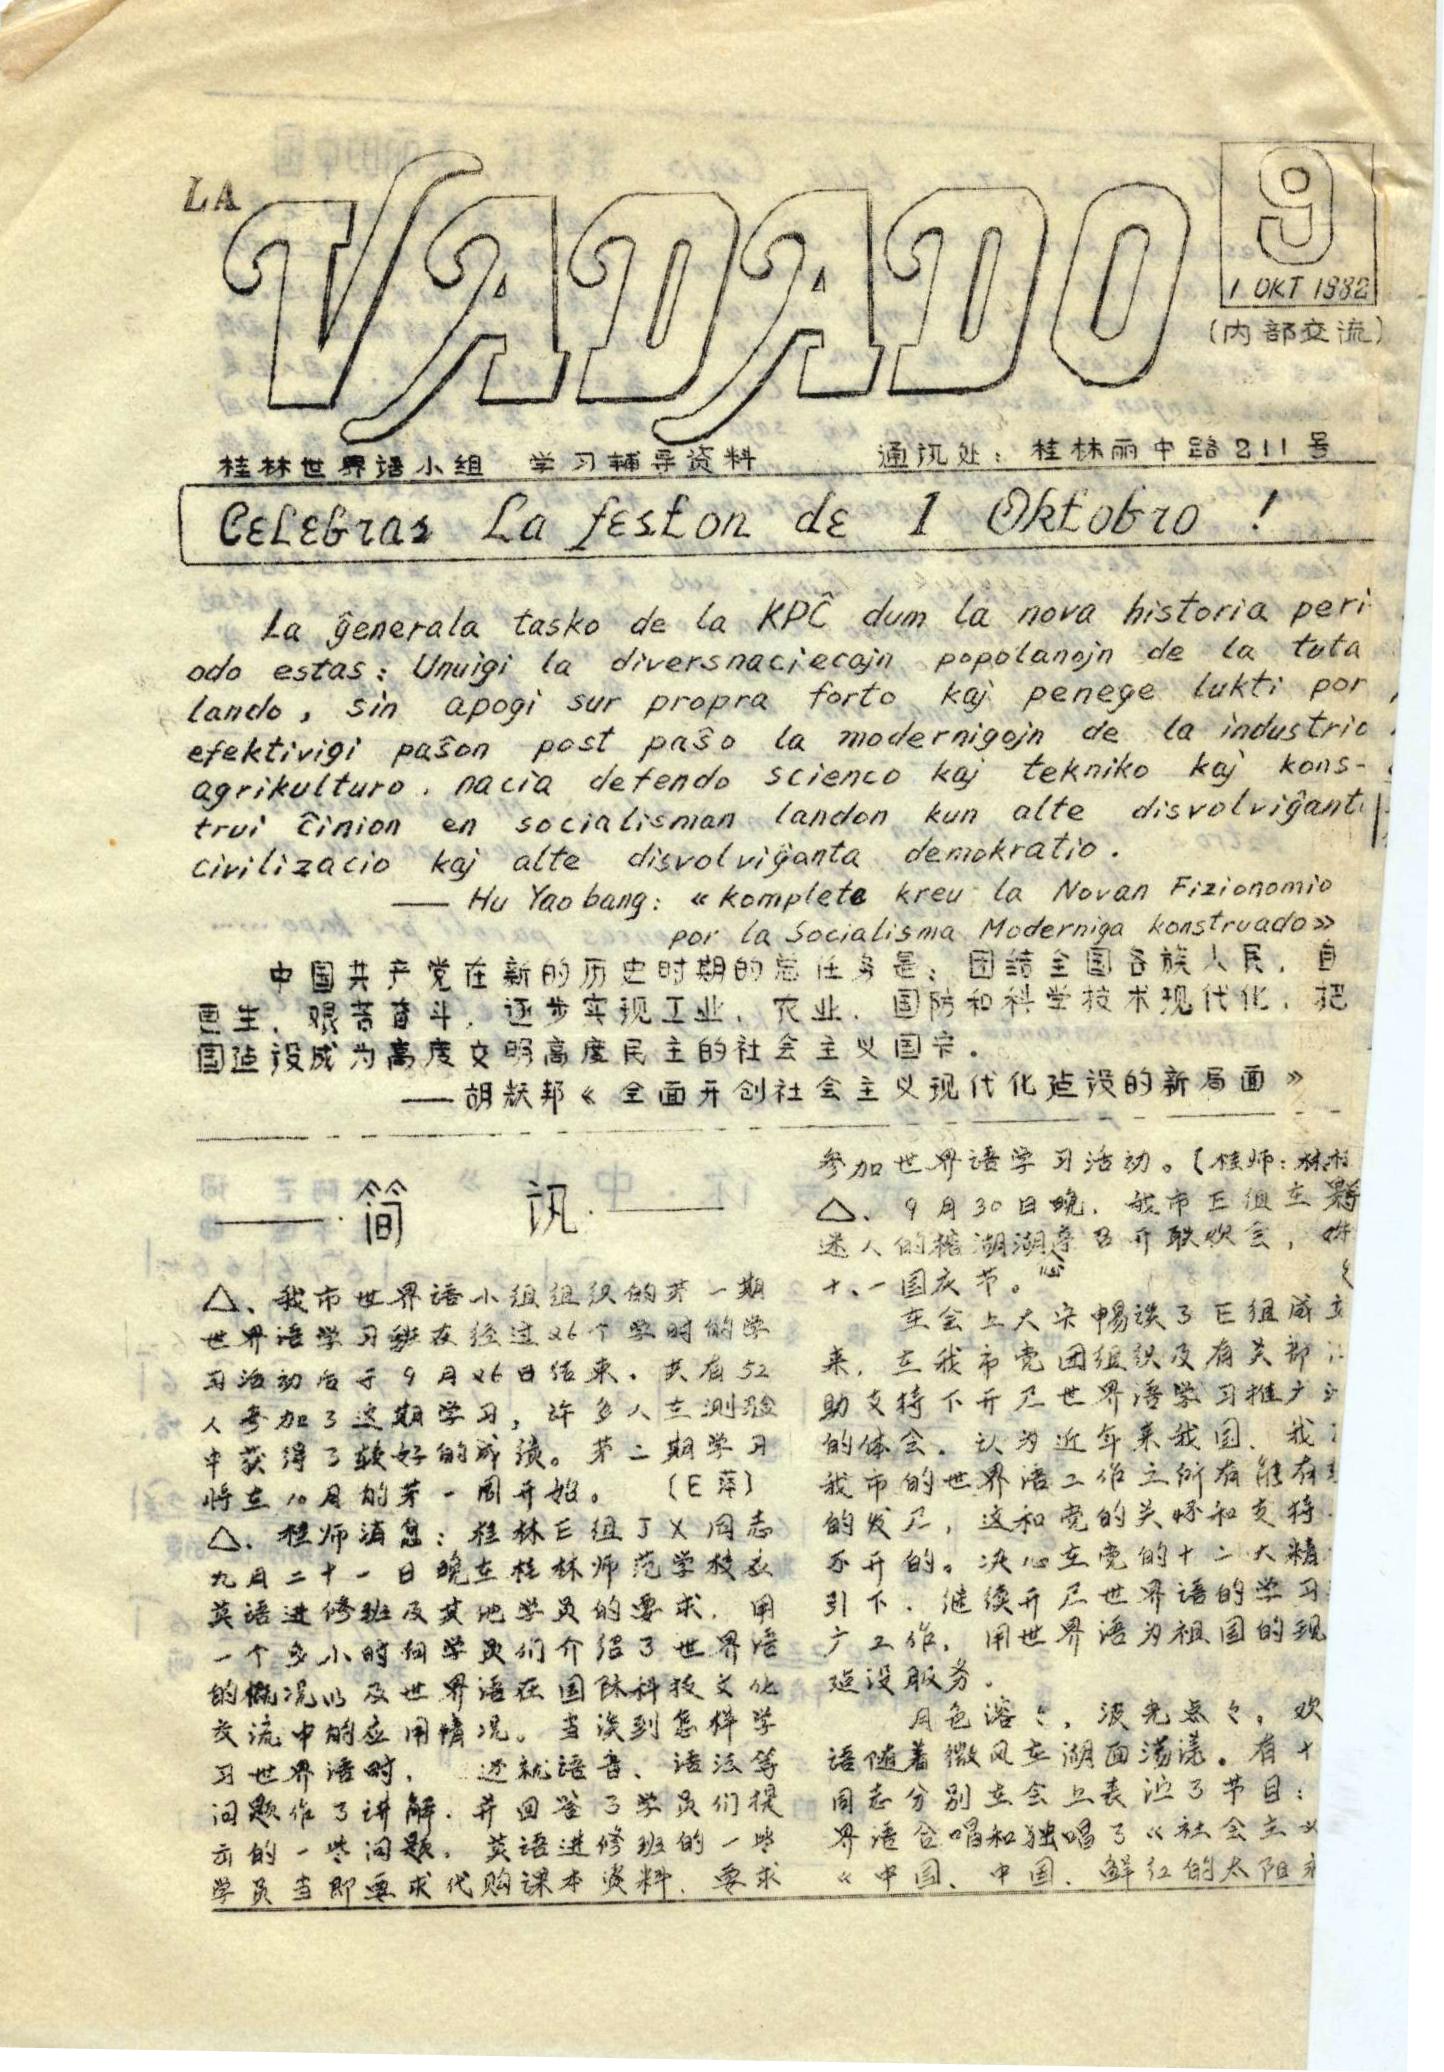 LA VADADO
9
1 OKT 1982
(内部交流)
桂林世界语小组 学习辅导资料 通讯处：桂林丽中路211号
Celebras La feston de 1 Oktobro !
La ĝenerala tasko de la KPĈ dum la nova historia peri
odo estas: Unuigi la diversnaciecajn popolanojn de la tuta
lando, sin apogi sur propra forto kaj penege lukti por
efektivigi paŝon post paŝo la modernigojn de la industrio
agrikulturo, nacia defendo scienco kaj tekniko kaj kons-
trui ĉinion en socialisman landon kun alte disvolviĝant
civilizacio kaj alte disvolviĝanta demokratio.
—— Hu Yaobang: «Komplete kreu la Novan Fizionomio
por la Socialisma Moderniga konstruado»
中国共产党在新的历史时期的总任务是：团结全国各族人民，自
更生，艰苦奋斗，逐步实现工业、农业、国防和科学技术现代化，把
国建设成为高度文明高度民主的社会主义国家。
——胡耀邦《全面开创社会主义现代化建设的新局面》
简 讯
△、我市世界语小组组织的第一期
世界语学习班在经过26个学时的学
习活动后于9月26日结束。共有52
人参加了这期学习，许多人在测验
中获得了较好的成绩。第二期学习
将在10月的第一周开始。 (E萍)
△、桂师消息：桂林E组JX同志
九月二十一日晚在桂林师范学校应
英语进修班及其他学员的要求，用
一个多小时向学员们介绍了世界语
的概况以及世界语在国际科技文化
交流中的应用情况。当谈到怎样学
习世界语时， 还就语音、语法等
问题作了讲解，并回答了学员们提
示的一些问题。英语进修班的一些
学员当即要求代购课本资料，要求
参加世界语学习活动。(桂师：林
△、9月30日晚，我市E组在景
迷人的榕湖湖心亭召开联欢会，
十、一国庆节。
在会上大家畅谈了E组成立
来，在我市党团组织及有关部
助支持下开展世界语学习推广
的体会。认为近年来我国、我
我市的世界语工作之所有能有
的发展，这和党的关怀和支持
不开的。决心在党的十二大精
引下，继续开展世界语的学习
广工作，用世界语为祖国的现
建设服务。
月色溶々，波光点々。欢
语随着微风在湖面荡漾。有十
同志分别在会上表演了节目：
界语合唱和独唱了《社会主义
《中国、中国，鲜红的太阳永